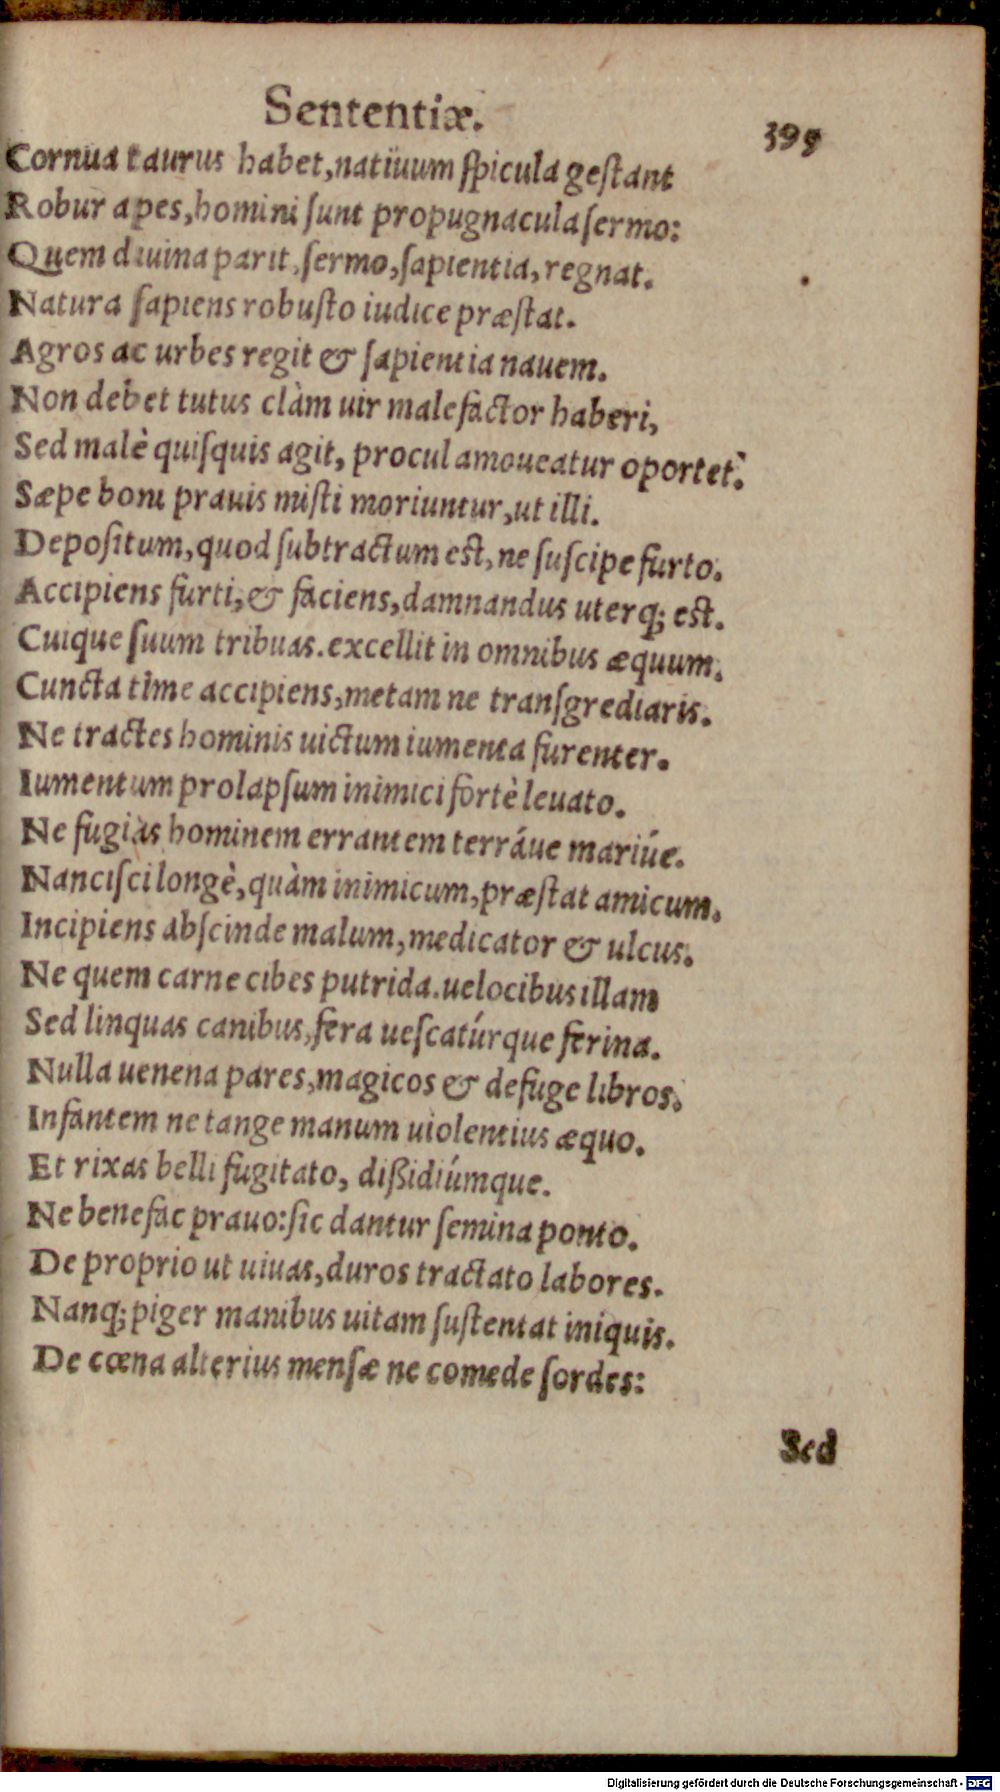 Sententiæ.
399
Cornua taurus habet, natiuum ſpicula geſtant
Robur apes, homini ſunt propugnacula ſermo:
Quem diuina parit, ſermo, ſapientia, regnat.
Natura ſapiens robuſto iudice præſtat.
Agros ac urbes regit & ſapientia nauem.
Non debet tutus clàm uir malefactor haberi,
Sed malè quiſquis agit, procul amoueatur oportet.
Sæpe boni prauis miſti moriuntur, ut illi.
Depoſitum, quod ſubtractum eſt, ne ſuſcipe furto.
Accipiens furti, & faciens, damnandus uterq; eſt.
Cuique ſuum tribuas. excellit in omnibus æquum.
Cuncta time accipiens, metam ne tranſgrediaris.
Ne tractes hominis uictum iumenta furenter.
Iumentum prolapſum inimici fortè leuato.
Ne fugias hominem errantem terráue mariúe.
Nanciſci longè, quàm inimicum, præſtat amicum.
Incipiens abſcinde malum, medicator & ulcus.
Ne quem carne cibes putrida. uelocibus illam
Sed linquas canibus, fera ueſcatúrque ferina.
Nulla uenena pares, magicos & defuge libros.
Infantem ne tange manum uiolentius æquo.
Et rixas belli fugitato, dißidiúmque.
Ne benefac prauo: ſic dantur ſemina ponto.
De proprio ut uiuas, duros tractato labores.
Nanq; piger manibus uitam ſuſtentat iniquis.
De cœna alterius menſæ ne comede ſordes:
Sed
Digitalisierung gefördert durch die Deutsche Forschungsgemeinschaft - DFG